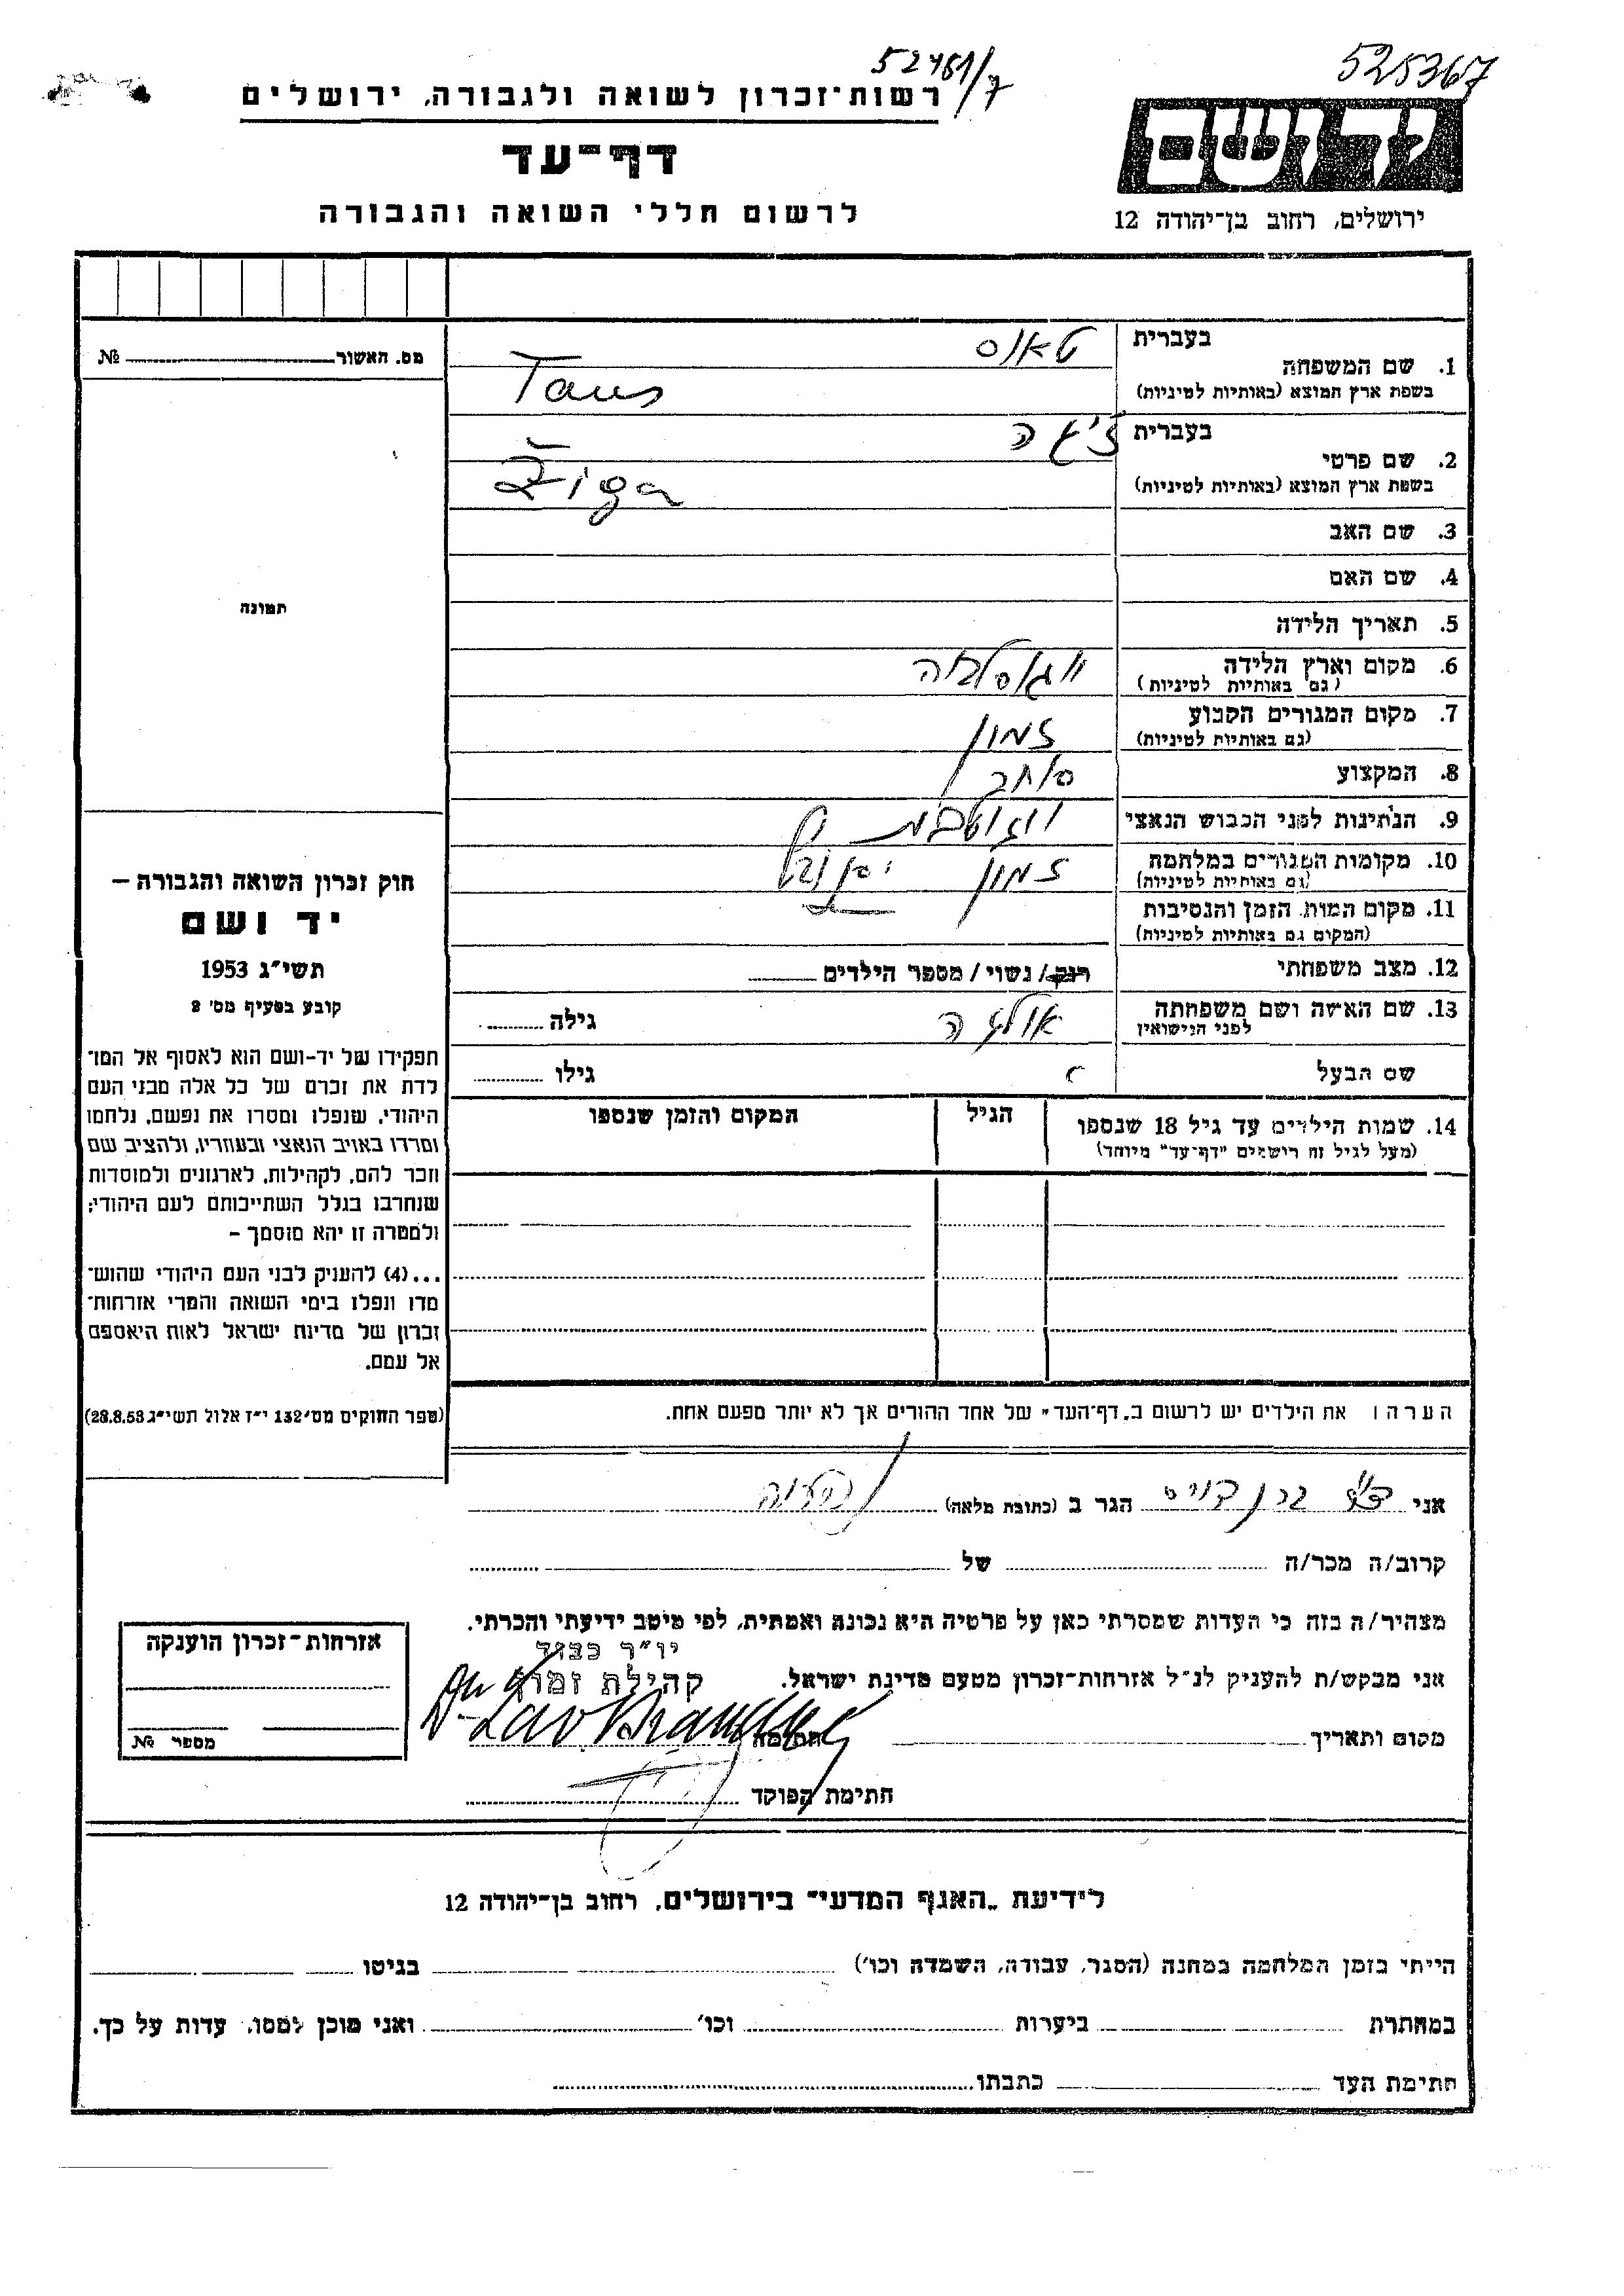 52461/7
525367
רשות־זכרון לשואה ולגבורה, ירושלים
דף־עד
לרשום חללי השואה והגבורה
יד ושם
ירושלים, רחוב בן־יהודה 12
מס. האשור № 
בעברית
טאוס
1. שם המשפחה
בשפת ארץ המוצא (באותיות לטיניות)
Taus
בעברית
ז'יגה
2. שם פרטי
בשפת ארץ המוצא (באותיות לטיניות)
Žiga
3. שם האב
4. שם האם
5. תאריך הלידה
תמונה
6. מקום וארץ הלידה
(גם באותיות לטיניות)
יוגוסלביה
7. מקום המגורים הקבוע
(גם באותיות לטיניות)
זמון
8. המקצוע
סוחר
9. הנתינות לפני הכבוש הנאצי
יוגוסלבית
10. מקומות המגורים במלחמה
(גם באותיות לטיניות)
זמון
11. מקום המות, הזמן והנסיבות
(המקום גם באותיות לטיניות)
12. מצב משפחתי
רווק/ נשוי / מספר הילדים
13. שם האשה ושם משפחתה
לפני הנישואין
אולגה
גילה
שם הבעל
גילו
14. שמות הילדים עד גיל 18 שנספו
(מעל לגיל זה רושמים "דף־עד" מיוחד)
הגיל
המקום והזמן שנספו
חוק זכרון השואה והגבורה –
יד ושם
תשי"ג 1953
קובע בסעיף מס' 2
תפקידו של יד-ושם הוא לאסוף אל המו־
לדת את זכרם של כל אלה מבני העם
היהודי, שנפלו ומסרו את נפשם, נלחמו
ומרדו באויב הנאצי ובעוזריו, ולהציב שם
וזכר להם, לקהילות, לארגונים ולמוסדות
שנחרבו בגלל השתייכותם לעם היהודי;
ולמטרה זו יהא מוסמך –
...(4) להעניק לבני העם היהודי שהוש־
מדו ונפלו בימי השואה והמרי אזרחות־
זכרון של מדינת ישראל לאות היאספם
אל עמם.
(ספר החוקים מס' 132 י"ז אלול תשי"ג 28.8.53)
הערה: את הילדים יש לרשום ב„דף־העד" של אחד ההורים אך לא יותר מפעם אחת.
אני ד"ר
הגר ב (כתובת מלאה)
נתניה
קרוב/ה מכר/ה
של
מצהיר/ה בזה כי העדות שמסרתי כאן על פרטיה היא נכונה ואמתית, לפי מיטב ידיעתי והכרתי.
יו"ר כבוד
קהילת זמון
אני מבקש/ת להעניק לנ"ל אזרחות־זכרון מטעם מדינת ישראל.
Dr Lav Brandeis
מקום ותאריך
חתימה
חתימת הפוקד
אזרחות־זכרון הוענקה
מספר №
לידיעת „האגף המדעי" בירושלים, רחוב בן־יהודה 12
הייתי בזמן המלחמה במחנה (הסגר, עבודה, השמדה וכו')
בגיטו
במחתרת
ביערות
וכו'
ואני מוכן למסור עדות על כך.
חתימת העד
כתבתו